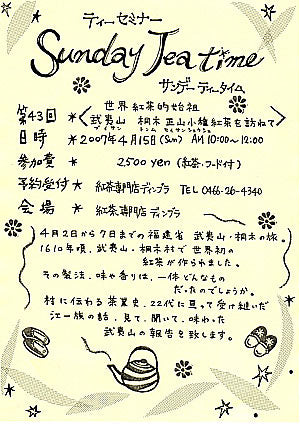 ティーセミナー
Sunday Tea time
サンデーティータイム
第43回
世界紅茶的始祖
＜武夷山 桐木 正山小種紅茶を訪ねて＞
日時 ★2007年4月15日(Sun) AM10:00～12:00
参加費 ★ 2500yen (紅茶・フード付)
予約受付★ 紅茶専門店ディンブラ TEL 0466-26-4340
会場 ★ 紅茶専門店 ディンブラ
4月2日から7日までの福建省 武夷山・桐木の旅。
1610年頃、武夷山・桐木村で世界初の
紅茶が作られました。
その製法、味や香りは、一体どんなもの
だったのでしょうか。
村に伝わる茶業史、22代に亘って受け継いだ
江一族の話、見て、聞いて、味わった
武夷山の報告を致します。